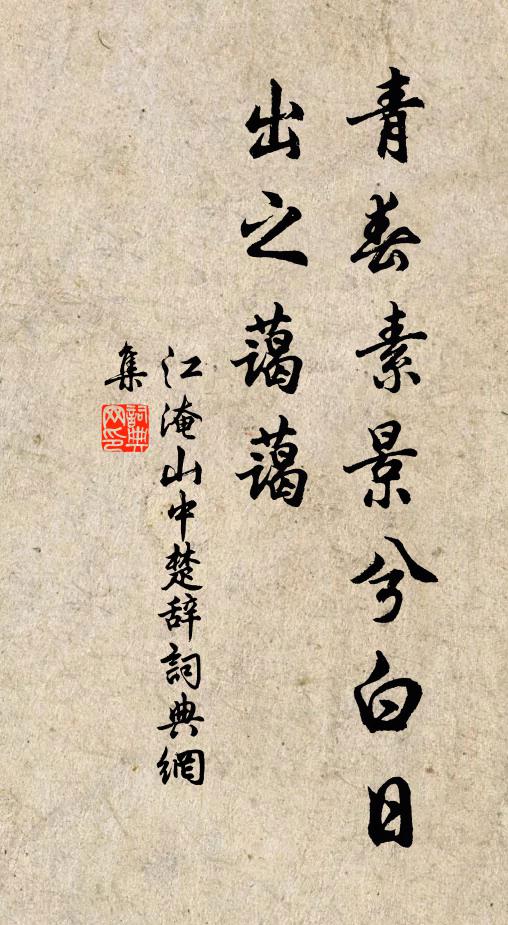 青春素景兮白日
出之藹藹
江淹山中楚辞詞典網
集
詞典網印